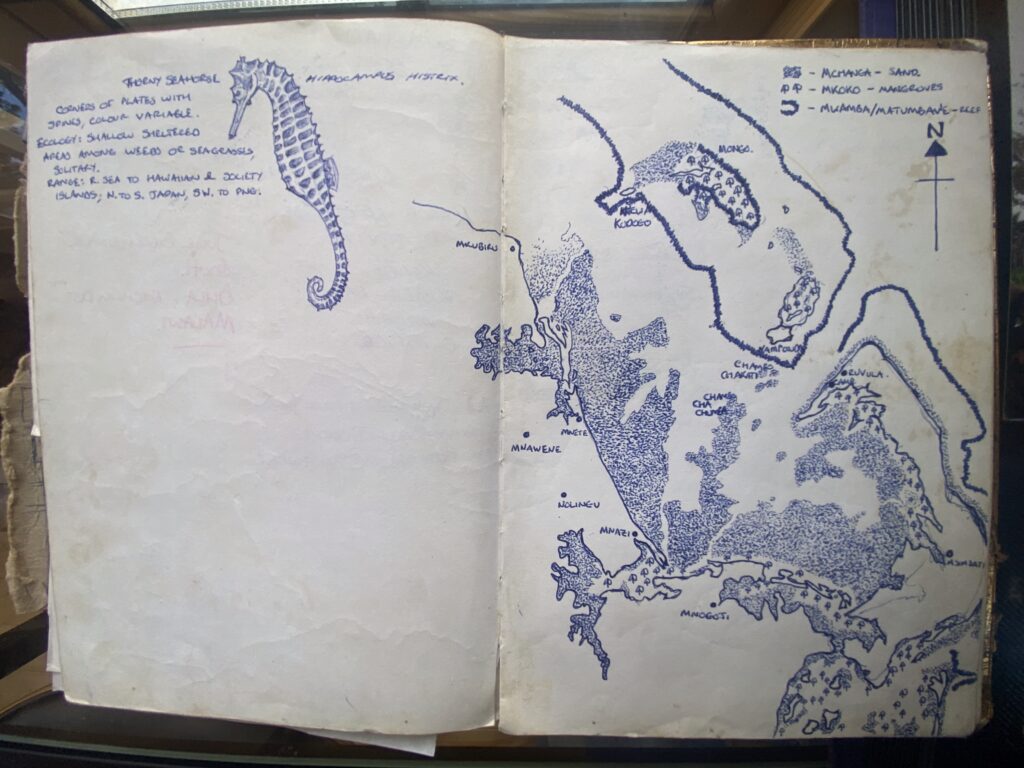 THORNY SEAHORSE
HIPPOCAMPUS HISTRIX.
CORNERS OF PLATES WITH
SPINES, COLOUR VARIABLE.
ECOLOGY: SHALLOW SHELTERED
AREAS AMONG WEEDS OR SEAGRASSES,
SOLITARY.
RANGE: R. SEA TO HAWAIIAN & SOCIETY
ISLANDS; N. TO S. JAPAN, S.W. TO PNG.
- MCHANGA - SAND.
- MKOKO - MANGROVES
- MWAMBA/MATUMBAWE - REEF
N
MONGO.
KIDOGO
MKUBIRU
NAMPONDA
CHAMBA
CHAKATI
RUVULA.
CHAMBA
CHA
MNETE
MNAWENE
NOLINGU
MNAZI
MNOGOTI